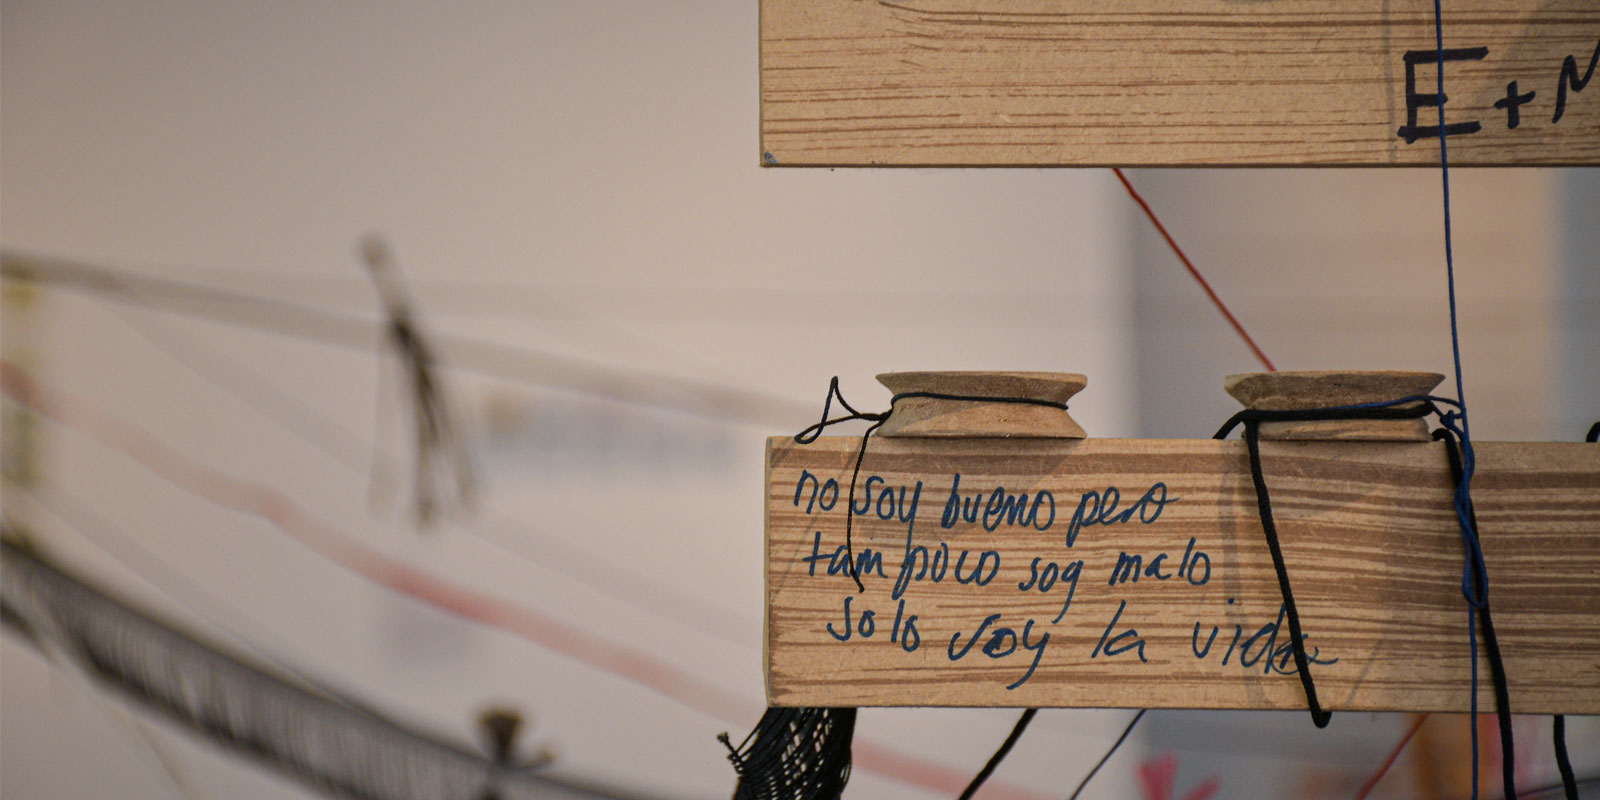 E + N
no soy bueno pero
tampoco soy malo
solo soy la vida